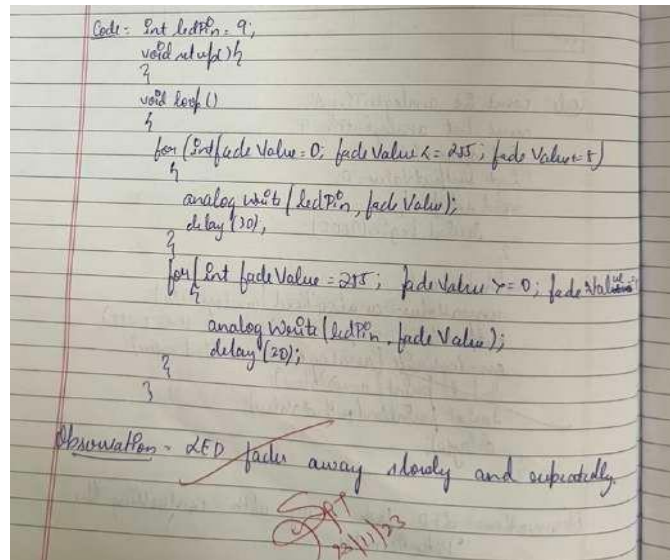 Code: int ledPin = 9;
void setup() {
}
void loop()
{
for (int fade Value = 0; fade Value <= 255; fade Value += 5)
{
analog write (ledPin, fade Value);
delay (30);
}
for (int fade Value = 255; fade Value >= 0; fade Value
{
analog Write (ledPin, fade Value);
delay (20);
}
}
Observation - LED fades away slowly and repeatedly.
23/11/23